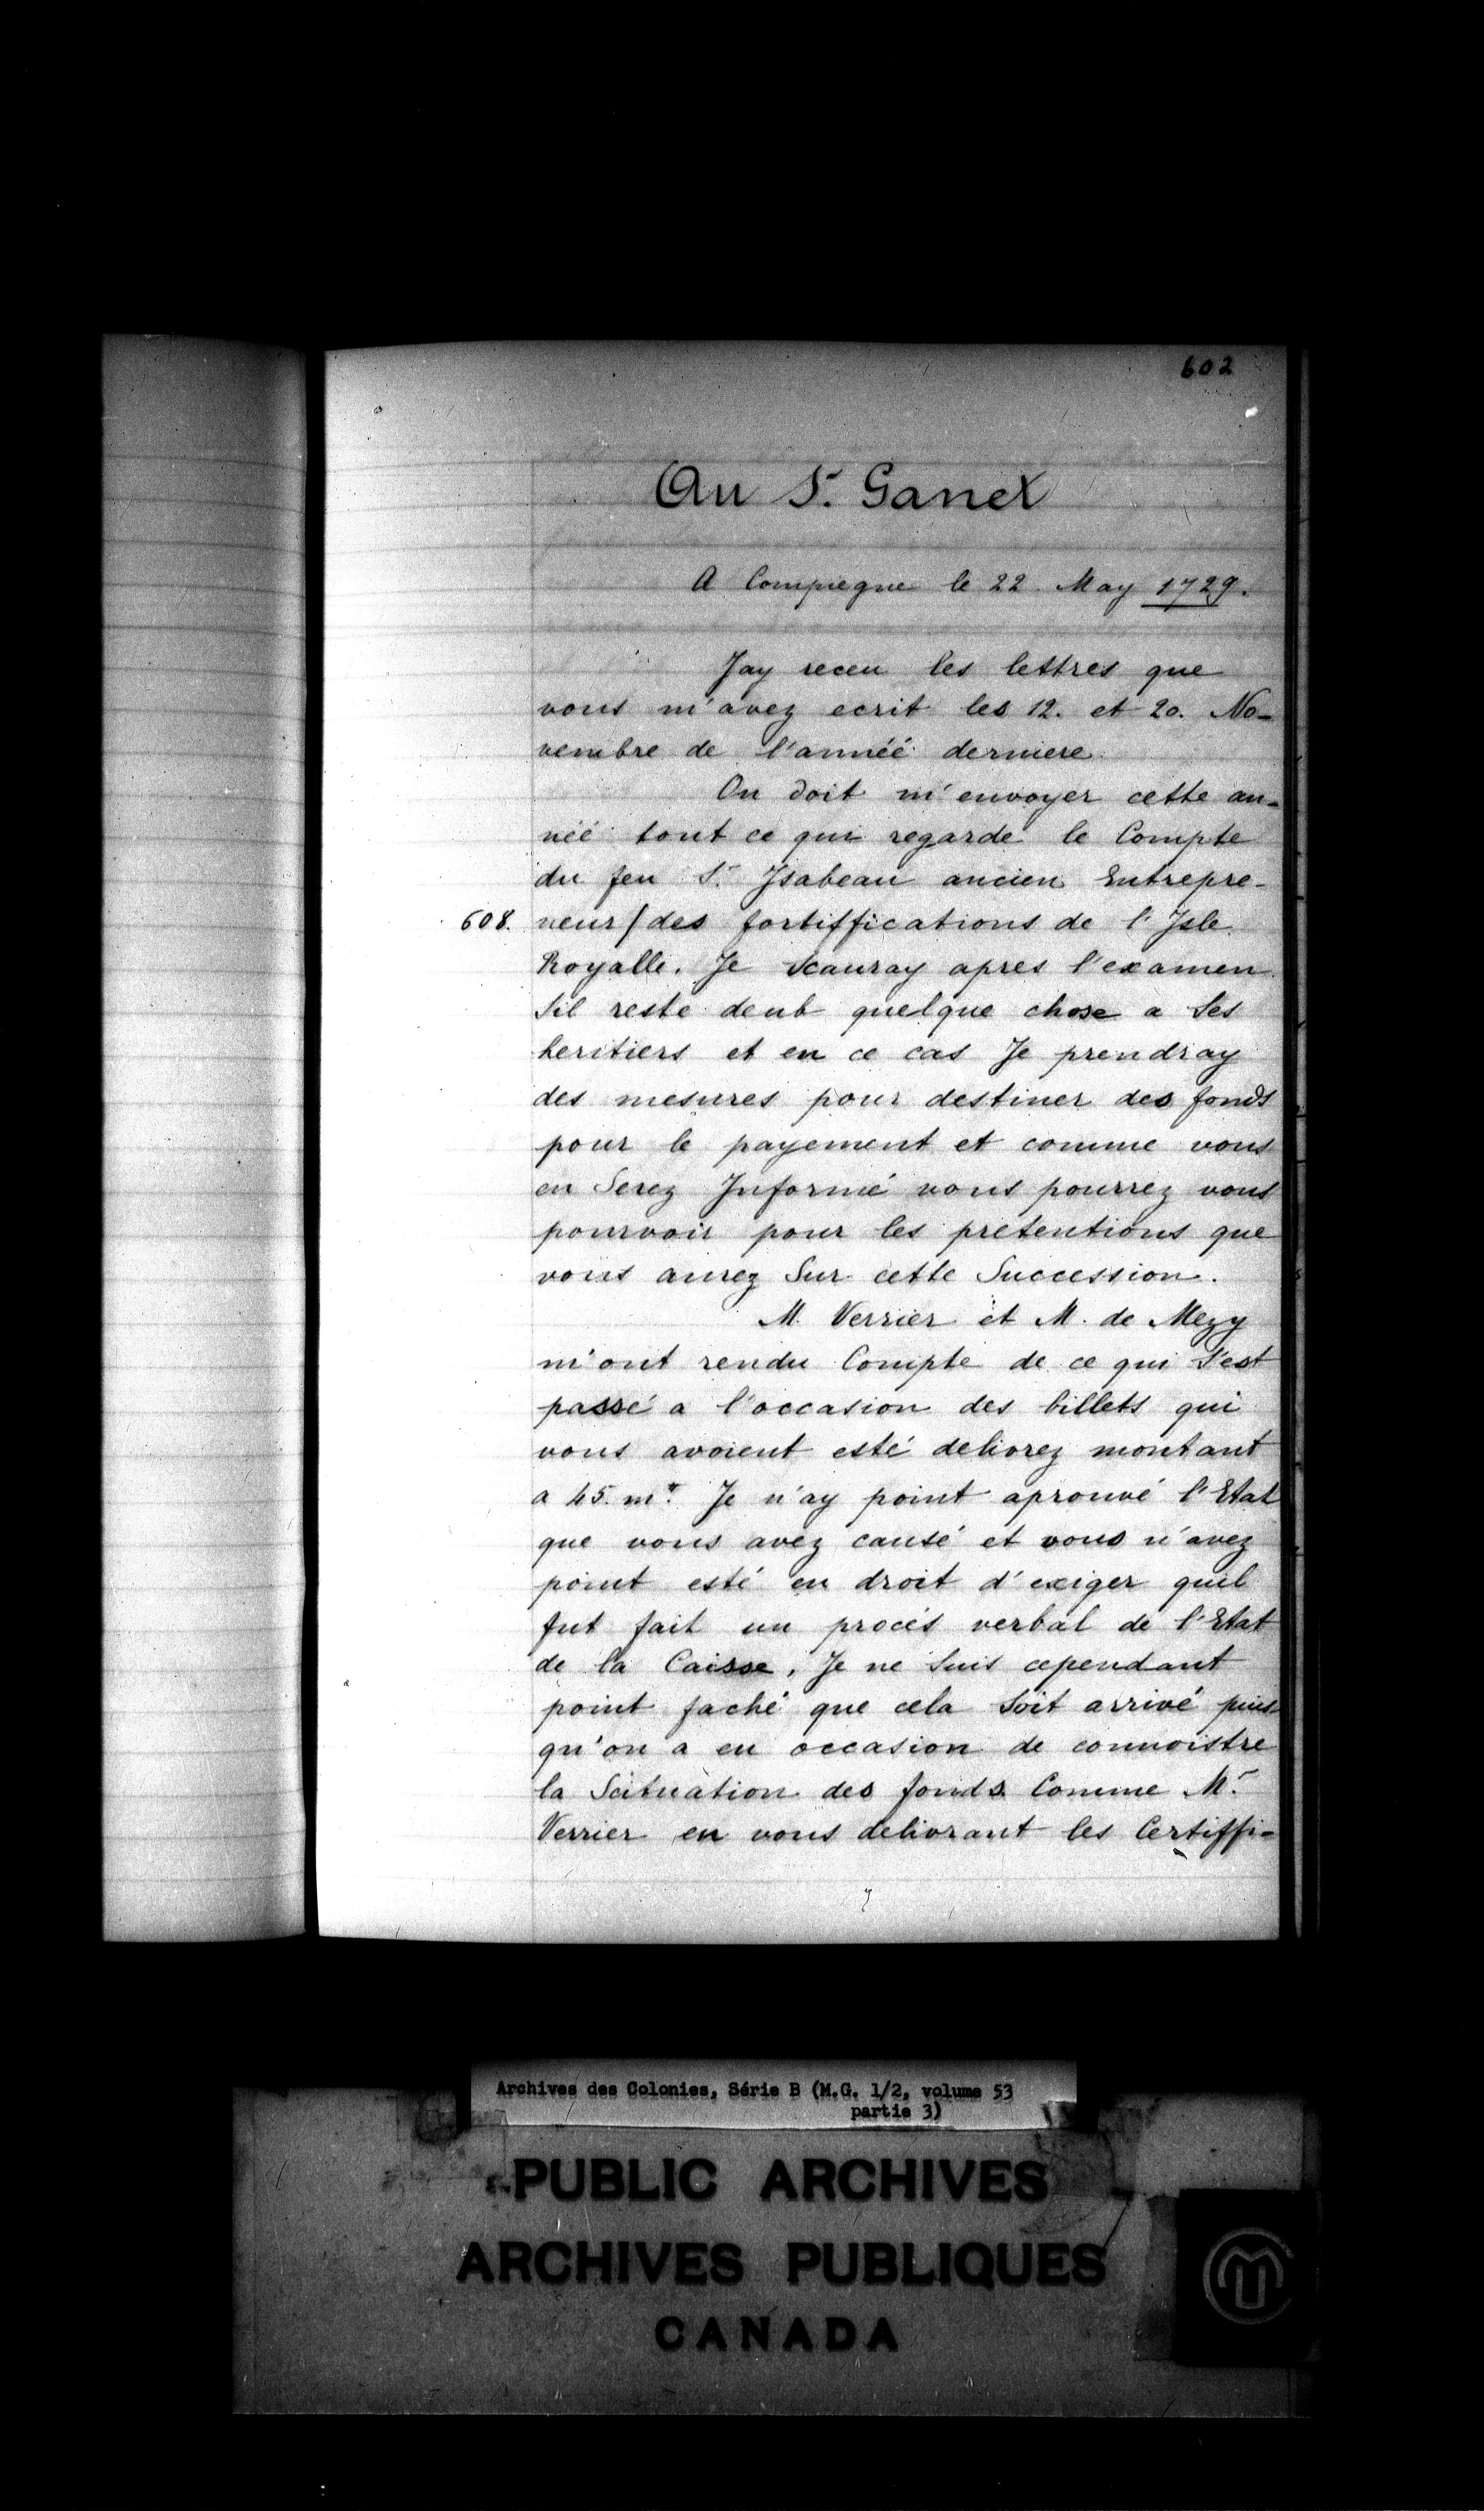 602
Au S.r Ganet
A Compiegne le 22 May 1729.
Jay receu les lettres que
vous m'avez ecrit les 12. et 20. No-
vembre de l'année derniere.
On doit m'envoyer cette an-
née tout ce qui regarde le Compte
du feu S.r Jsabeau ancien Entrepre-
608. neur/des fortiffications de l'Jsle
Royalle. Je Scauray apres l'examen
Sil reste deub quelque chose a Ses
heritiers et en ce cas Je prendray
des mesures pour destiner des fonds
pour le payement et comme vous
en Serez Jnformé vous pourrez vous
pourvoir pour les pretentions que
vous aurez Sur cette Succession.
M. Verrier et M. de Mezy
m'ont rendu Compte de ce qui S'est
passé a l'occasion des billets qui
vous avoient esté delivrez montant
a 45. m.tt Je n'ay point aprouvé l'Etat
que vous avez causé et vous n'avez
point esté en droit d'exiger quil
fut fait un procés verbal de l'Etat
de la Caisse. Je ne Suis cependant
point faché que cela Soit arrivé puis-
qu'on a eu occasion de connoistre
la Scituation des fonds. Comme M.r
Verrier en vous delivrant les Certiffi-
Archives des Colonies, Série B (M.G. 1/2, volume 53
partie 3)
PUBLIC ARCHIVES
ARCHIVES PUBLIQUES
CANADA